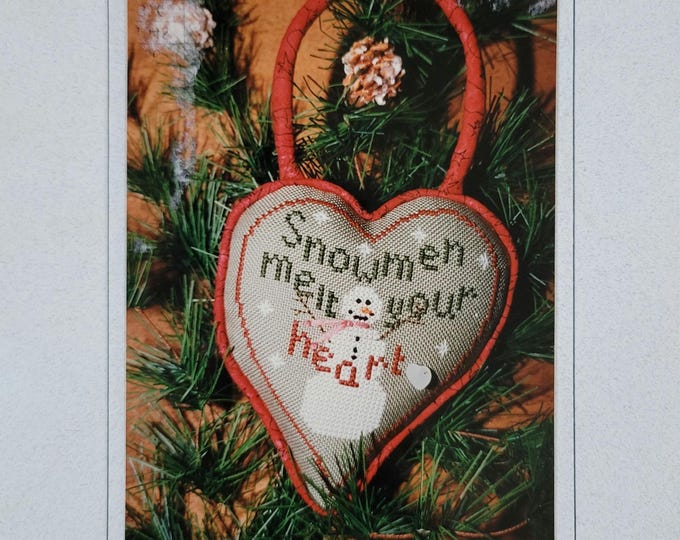 Snowmen
melt your
heart